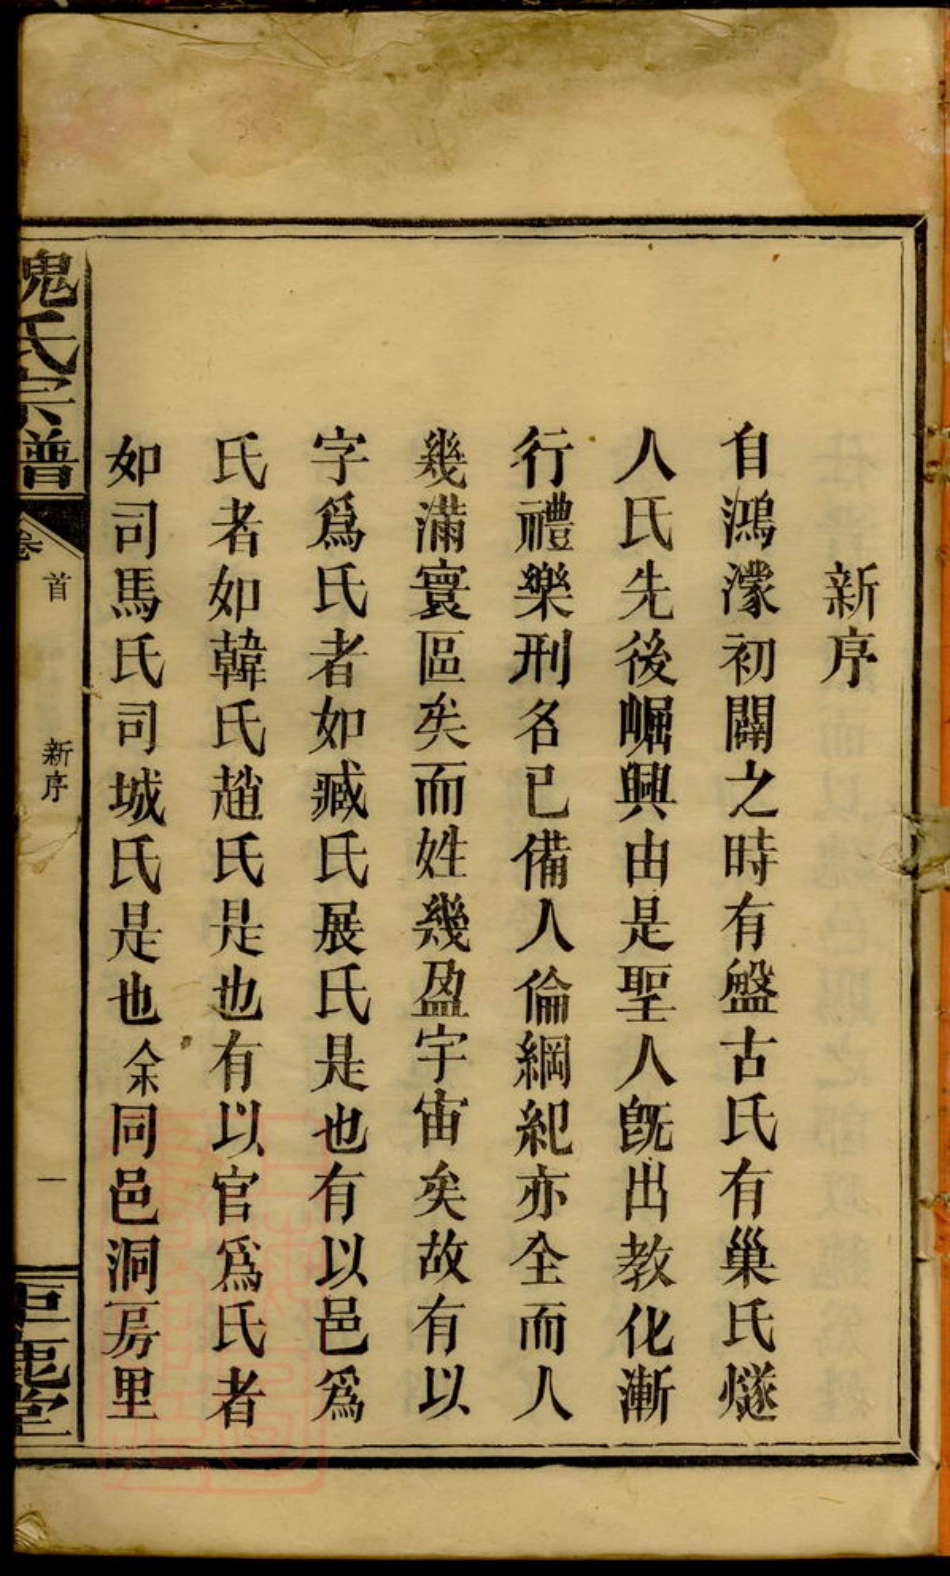 新序
自鴻濛初闢之時有盤古氏有巢氏燧
人氏先後崛興由是聖人旣出教化漸
行禮樂刑名已備人倫綱紀亦全而人
幾滿寰區矣而姓幾盈宇宙矣故有以
字爲氏者如臧氏展氏是也有以邑爲
氏者如韓氏趙氏是也有以官爲氏者
如司馬氏司城氏是也余同邑洞房里
氏宗譜
卷首
新序
一
鹿堂